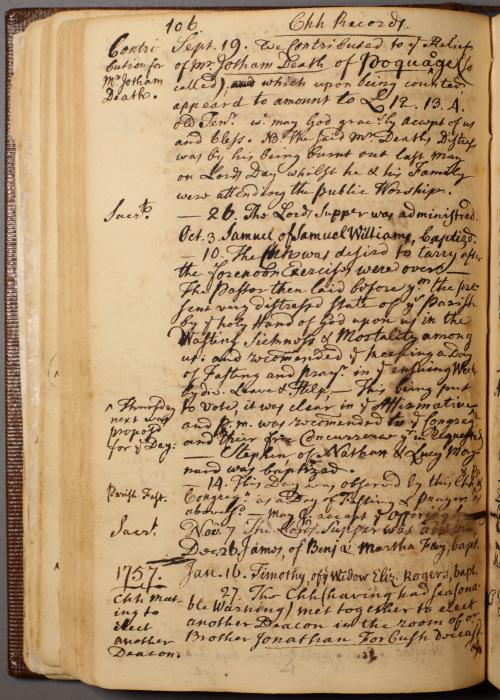 106 Chh Records.
Contri
bution for
Mr Jotham
Death.
Sept. 19. We Contributed to ye Relief
of Mr Jotham Death of Poquage (so
called), and which upon being counted
appeard to amount to £ 12. 13. 4.
old Tenr. wc may God gracily accept of us
and bless. NB. The said Mr Deaths Distress
was by his being burnt out last May
on Lords Day whilst he & his Family
were attending the publick Worship.
Sacrt.
— 26. The Lords Supper was administred.
Oct. 3. Samuel of Samuel Williams, baptizd.
— 10. The Chh was desird to tarry after
the Forenoon Exercises were over —
The Pastor then laid before ym the pre-
sent very distressd state of ye Parish
by ye holy Hand of God upon us in the
Wasting Sickness & Mortality among
us: and recomended ye keeping a Day
of Fasting and prayr in ye ensuing Week
by div. Leave & Help, — This being put
to vote, it was clear in ye Affirmative
^ Thursday
next was
propos'd
for ye Day.
and p.m. was recomended to ye Congregn
and their Concurrence requested
— Stephen of Nathan & Lucy May-
nard was baptized.
Parish Fast.
— 14. This Day was observd by this Chh &
Congregn as a Day of Fasting & prayer as
above — May God accept ye offering
Sacrt.
Novr. 7 The Lords Supper was
Dec. 26. James, of Benj & Martha Fay, bapt.
1757.
Jan. 16. Timothy, of ye Widow Eliz. Rogers, bapt.
Chh meet-
ing to
elect
another
Deacon.
27. The Chh (having had seasona-
ble Warning) met together to elect
another Deacon in the room of or
Brother Jonathan Forbush deceasd